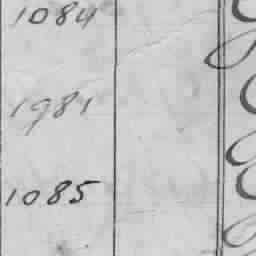 1084
1981
1085